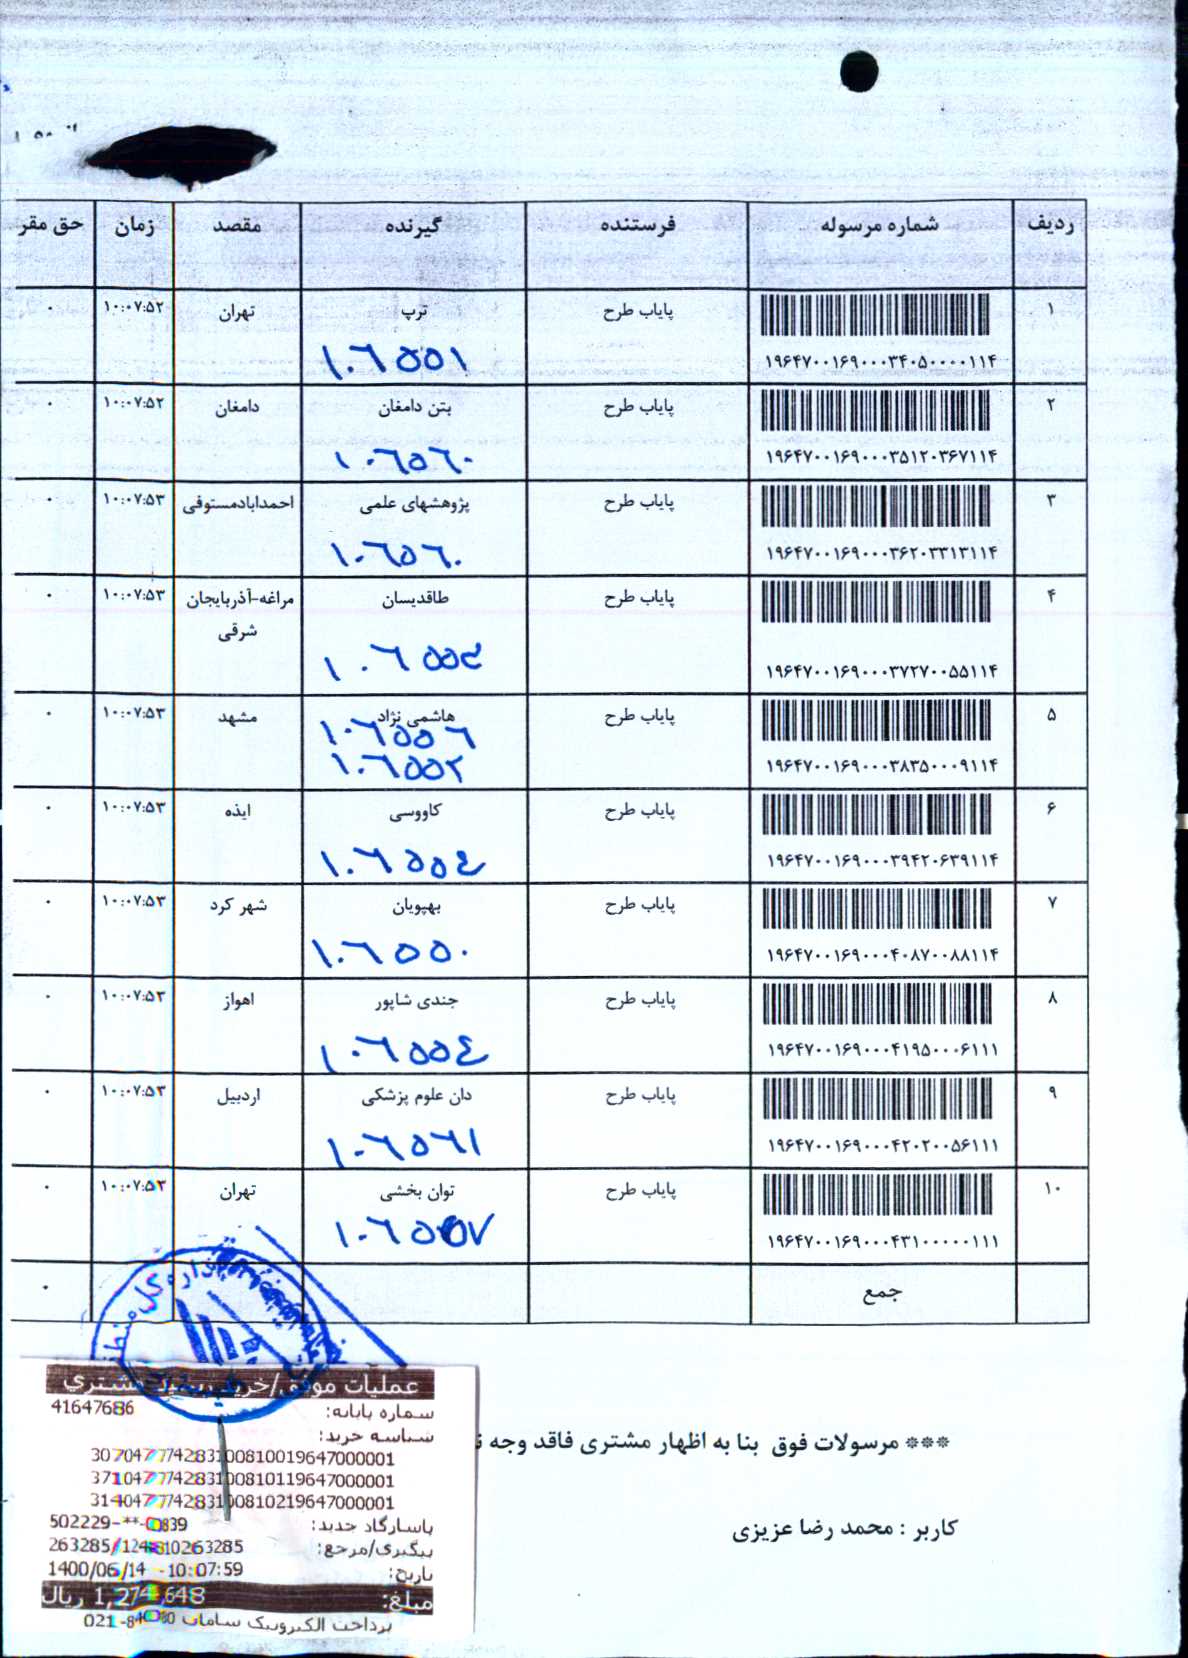 ردیف شماره مرسوله فرستنده گیرنده مقصد زمان حق مقر
۱ پایاب طرح ترپ تهران ۱۰:۰۷:۵۲ ۰
۱۹۶۴۷۰۰۱۶۹۰۰۰۳۴۰۵۰۰۰۰۱۱۴ ۱۰٦۵۵۱
۲ پایاب طرح بتن دامغان دامغان ۱۰:۰۷:۵۲ ۰
۱۹۶۴۷۰۰۱۶۹۰۰۰۳۵۱۲۰۳۶۷۱۱۴ ۱۰٦۵٦۰
۳ پایاب طرح پژوهشهای علمی احمدابادمستوفی ۱۰:۰۷:۵۳ ۰
۱۹۶۴۷۰۰۱۶۹۰۰۰۳۶۲۰۳۳۱۳۱۱۴ ۱۰٦۵٦۰
۴ پایاب طرح طاقدیسان مراغه-آذربایجان ۱۰:۰۷:۵۳ ۰
شرقی
۱۹۶۴۷۰۰۱۶۹۰۰۰۳۷۲۷۰۰۵۵۱۱۴
۵ پایاب طرح هاشمی نژاد مشهد ۱۰:۰۷:۵۳ ۰
۱۰٦۵۵٦
۱۹۶۴۷۰۰۱۶۹۰۰۰۳۸۳۵۰۰۰۹۱۱۴ ۱۰٦۵۵۲
۶ پایاب طرح کاووسی ایذه ۱۰:۰۷:۵۳ ۰
۱۹۶۴۷۰۰۱۶۹۰۰۰۳۹۴۲۰۶۳۹۱۱۴ ۱۰٦۵۵٤
۷ پایاب طرح بهپویان شهر کرد ۱۰:۰۷:۵۳ ۰
۱۹۶۴۷۰۰۱۶۹۰۰۰۴۰۸۷۰۰۸۸۱۱۴ ۱۰٦۵۵۰
۸ پایاب طرح جندی شاپور اهواز ۱۰:۰۷:۵۳ ۰
۱۹۶۴۷۰۰۱۶۹۰۰۰۴۱۹۵۰۰۰۶۱۱۱ ۱۰٦۵۵٤
۹ پایاب طرح دان علوم پزشکی اردبیل ۱۰:۰۷:۵۳ ۰
۱۹۶۴۷۰۰۱۶۹۰۰۰۴۲۰۲۰۰۵۶۱۱۱ ۱۰٦۵٦۱
۱۰ پایاب طرح توان بخشی تهران ۱۰:۰۷:۵۳ ۰
۱۹۶۴۷۰۰۱۶۹۰۰۰۴۳۱۰۰۰۰۰۱۱۱ ۱۰٦۵۵۷
جمع ۰
اداره کل
عملیات موفق/خرید مشتری
شماره پایانه: 41647686
شناسه خرید:
307047774283100810019647000001
371047774283100810119647000001
314047774283100810219647000001
پاسارگاد جدید: 502229-**-0839
پیگیری/مرجع:
تاریخ: 1400/06/14 - 10:07:59
مبلغ: 1,274,648 ریال
پرداخت الکترونیک سامان
*** مرسولات فوق بنا به اظهار مشتری فاقد وجه
کاربر : محمد رضا عزیزی